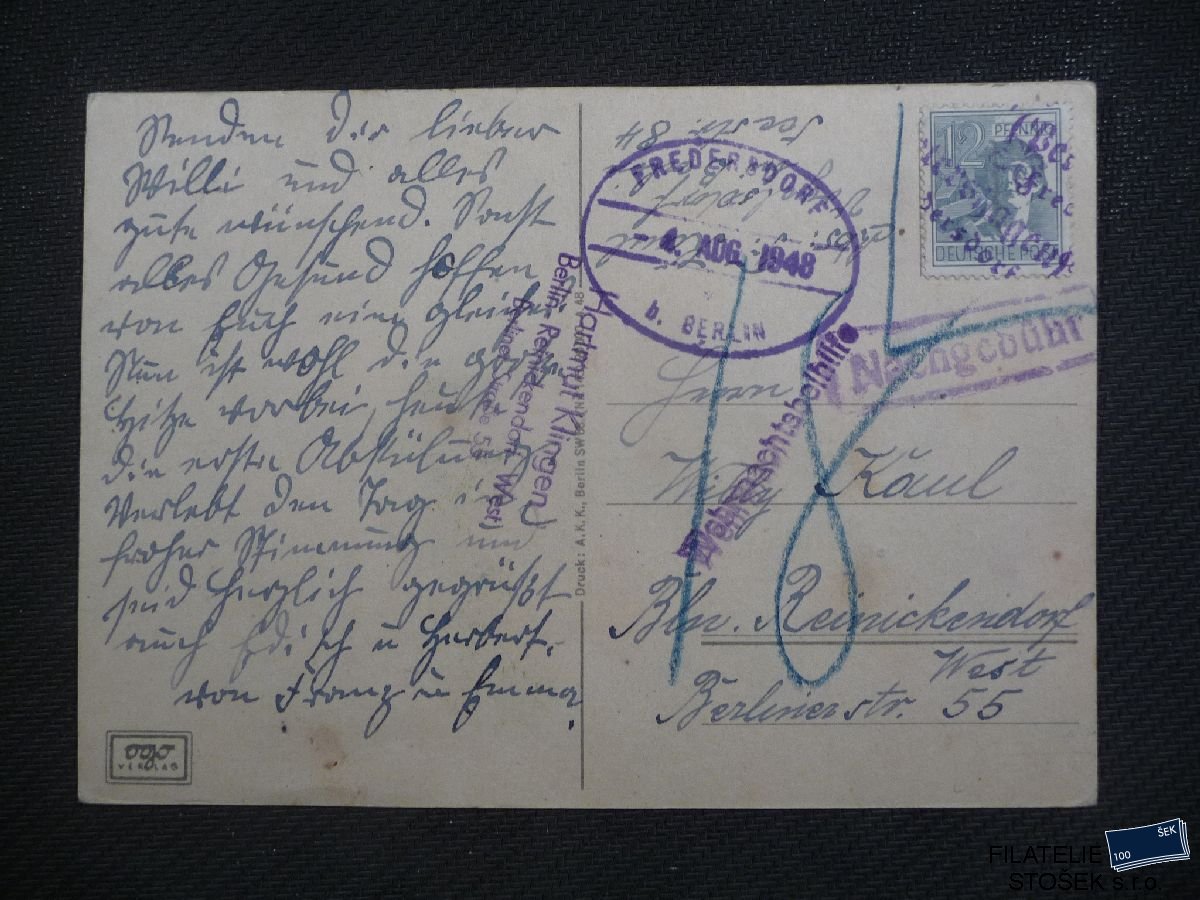 Senden dir lieber
Willi und alles
gute wünschend. Sonst
alles Gesund hoffen
von Euch ein gleiches
Nun ist wohl die große
Hitze vorbei, heute
die erste Abkühlung
Verlebt den Tag in
froher Stimmung und
seid herzlich gegrüßt
auch Edith u Herbert.
von Franz u Emma.
VERLAG
Druck: A.K.K., Berlin SW
Hartmut Klingen
Berlin-Reinickendorf (West)
Seestr. 84
FREDERSDORF
- 4. AUG. 1948
b. BERLIN
12 PFENNIG
DEUTSCHE POST
Nachgebühr
18
Herrn
Willy Kaul
Bln. Reinickendorf
West
Berlinerstr. 55
100 ŠEK
FILATELIE
STOŠEK s.r.o.